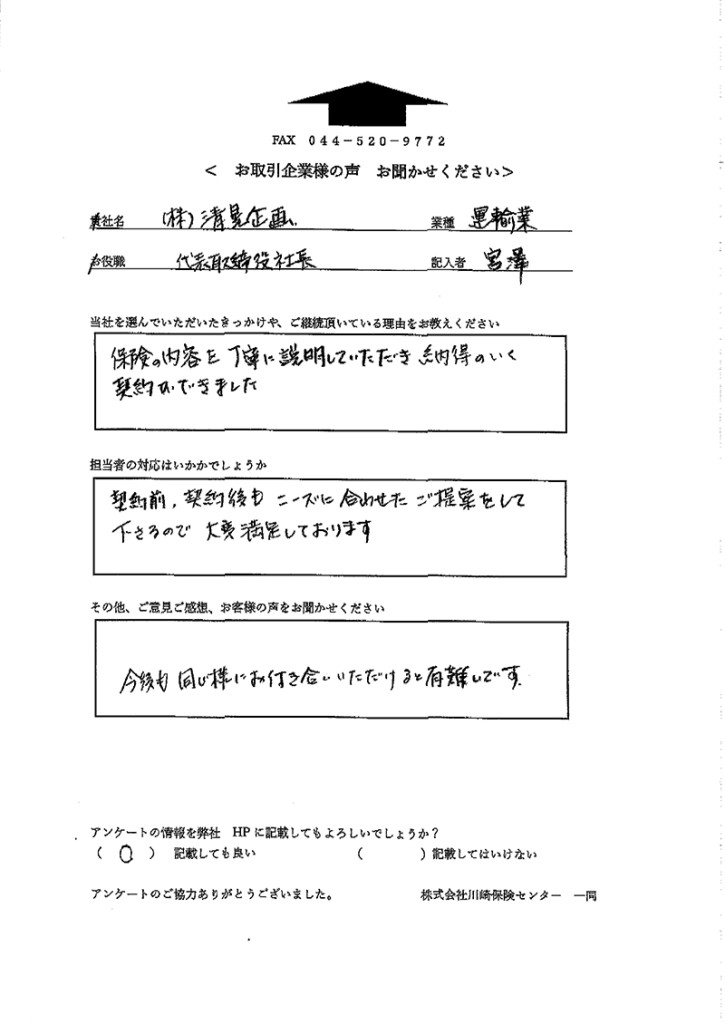 FAX 044-520-9772
< お取引企業様の声 お聞かせください>
貴社名 (株)清晃企画 業種 運輸業
お役職 代表取締役社長 記入者 宮澤
当社を選んでいただいたきっかけや、ご継続頂いている理由をお教えください
保険の内容を丁寧に説明していただき納得のいく
契約ができました
担当者の対応はいかかでしょうか
契約前，契約後もニーズに合わせたご提案をして
下さるので大変満足しております
その他、ご意見ご感想、お客様の声をお聞かせください
今後も同じ様にお付き合いいただけると有難いです.
アンケートの情報を弊社 HPに記載してもよろしいでしょうか？
( O ) 記載しても良い ( )記載してはいけない
アンケートのご協力ありがとうございました。 株式会社川崎保険センター 一同